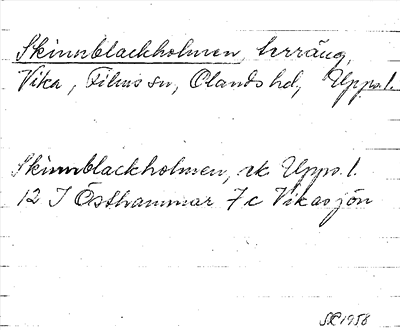 Skinnblackholmen, terräng,
Vika, Films sn, Olands hd, Upps. l.
Skinnblackholmen, ek Upps. l.
12 I Östhammar 7c Vikasjön
1958